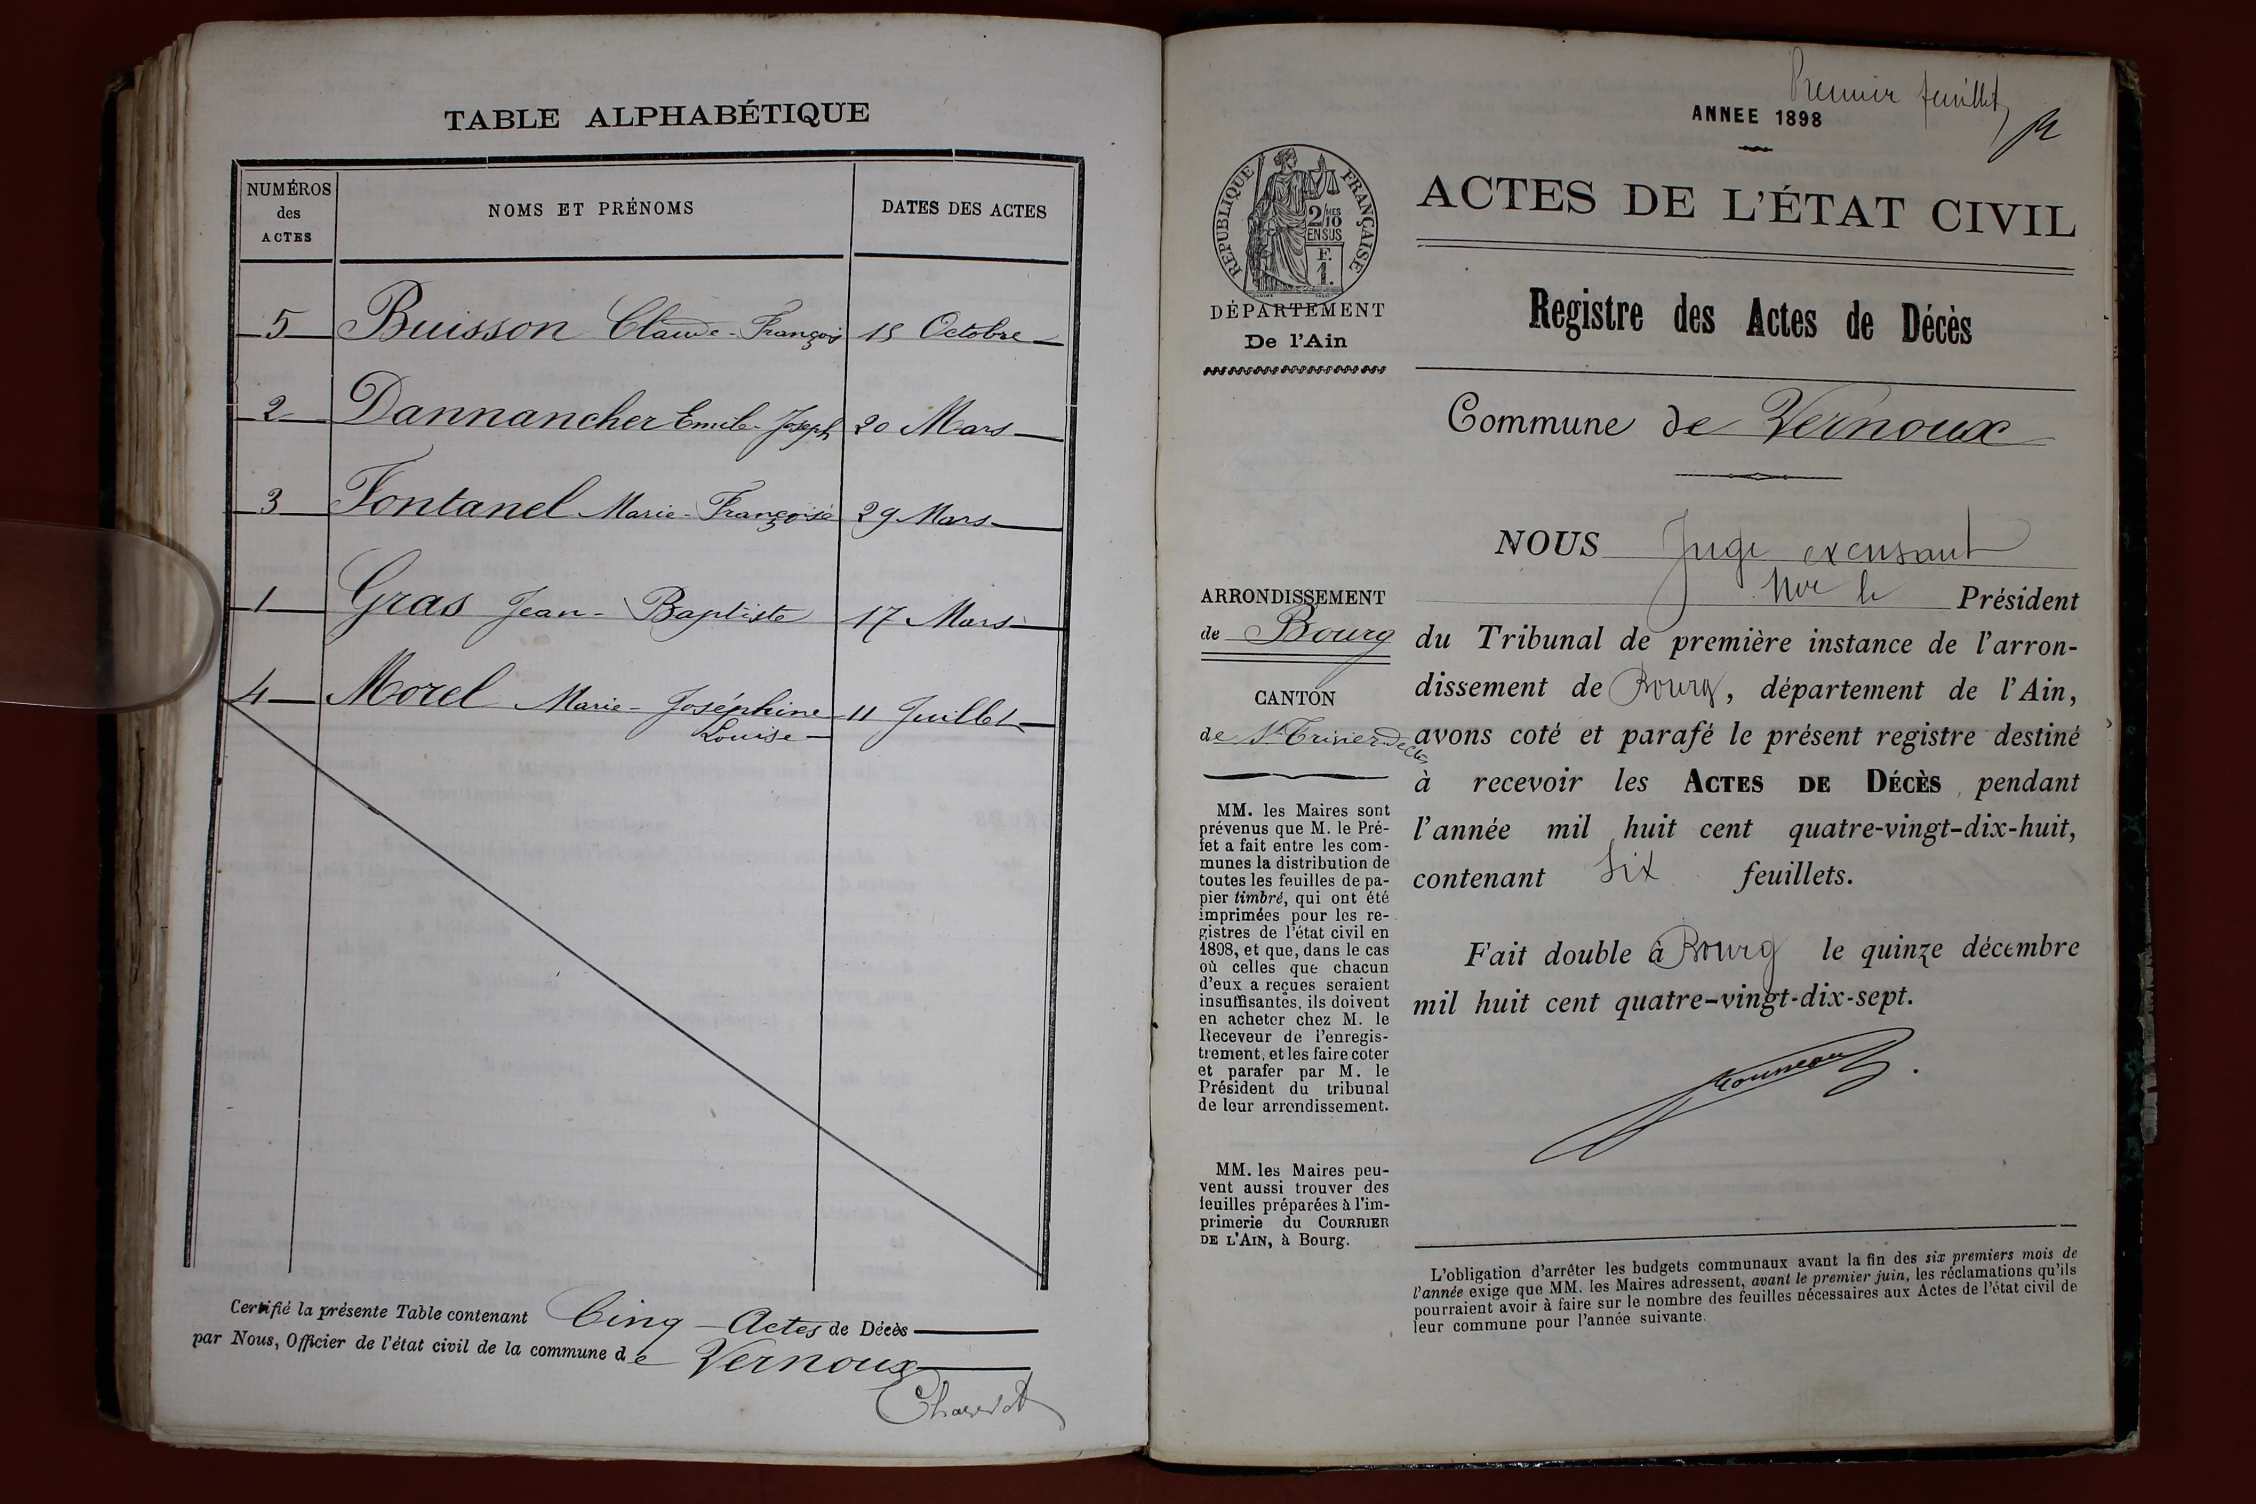 TABLE ALPHABÉTIQUE
NUMÉROS
des
ACTES
NOMS ET PRÉNOMS
DATES DES ACTES
5 Buisson Claude-François 15 Octobre
2 Dannancher Emile-Joseph 20 Mars
3 Fontanel Marie-Françoise 29 Mars
1 Gras Jean-Baptiste 17 Mars
4 Morel Marie-Joséphine 11 Juillet
Louise
Certifié la présente Table contenant Cinq Actes de Décès
par Nous, Officier de l'état civil de la commune de Vernoux
Premier feuillet
ANNEE 1898
RÉPUBLIQUE FRANÇAISE
2/10
EN SUS
F.
1.
DÉPARTEMENT
De l'Ain
ACTES DE L'ÉTAT CIVIL
Registre des Actes de Décès
Commune de Vernoux
ARRONDISSEMENT
de Bourg
CANTON
de St Trivier de Ctes
MM. les Maires sont
prévenus que M. le Pré-
fet a fait entre les com-
munes la distribution de
toutes les feuilles de pa-
pier timbré, qui ont été
imprimées pour les re-
gistres de l'état civil en
1898, et que, dans le cas
où celles que chacun
d'eux a reçues seraient
insuffisantes, ils doivent
en acheter chez M. le
Receveur de l'enregis-
trement, et les faire coter
et parafer par M. le
Président du tribunal
de leur arrondissement.
MM. les Maires peu-
vent aussi trouver des
feuilles préparées à l'im-
primerie du COURRIER
DE L'AIN, à Bourg.
NOUS Juge excusant
Mr le Président
du Tribunal de première instance de l'arron-
dissement de Bourg, département de l'Ain,
avons coté et parafé le présent registre destiné
à recevoir les ACTES DE DÉCÈS pendant
l'année mil huit cent quatre-vingt-dix-huit,
contenant Six feuillets.
Fait double à Bourg le quinze décembre
mil huit cent quatre-vingt-dix-sept.
L'obligation d'arrêter les budgets communaux avant la fin des six premiers mois de
l'année exige que MM. les Maires adressent, avant le premier juin, les réclamations qu'ils
pourraient avoir à faire sur le nombre des feuilles nécessaires aux Actes de l'état civil de
leur commune pour l'année suivante.